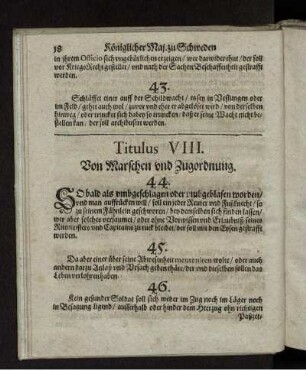 18 Königlicher Maj. zu Schweden
in ihrem Officio sich ungebürlich erzeigen / wer darwider thut / der soll
vor Kriegs Recht gestellet / und nach der Sachen Beschaffenheit gestrafft
werden.
43.
Schläffet einer auff der Schildwacht / es sey in Vestungen oder
im Feld / gehet auch wol / zuvor und eher er abgelöset wird / von derselben
hinweg / oder trincket sich dabey so truncken / daß er seine Wacht nicht be-
stellen kan / der soll archibusirt werden.
Titulus VIII.
Von Marschen vnd Zugordnung.
44.
SO bald als vmbgeschlagen oder vmbgeblasen worden /
und man auffrücken will / soll ein jeder Reuter und Fußknecht / so
zu seinem Fähnlein geschworen / bey demselben sich finden lassen /
wer aber solches versäumet / oder ohne Vorwissen und Erlaubniß seines
Rittmeisters und Capitains zu rück bleibet / der soll mit den Eysen gestrafft
werden.
45.
Da aber einer über seine Abwesenheit wolte / oder auch
andern darzu Anlaß und Ursach geben thäte / der und dieselben sollen das
Leben verlohren haben.
46.
Kein gesunder Soldat soll sich weder im Zug noch im Läger noch
in Besatzung ligend / ausserhalb oder hinder dem Herzug ohn richtigen
Paßzet /